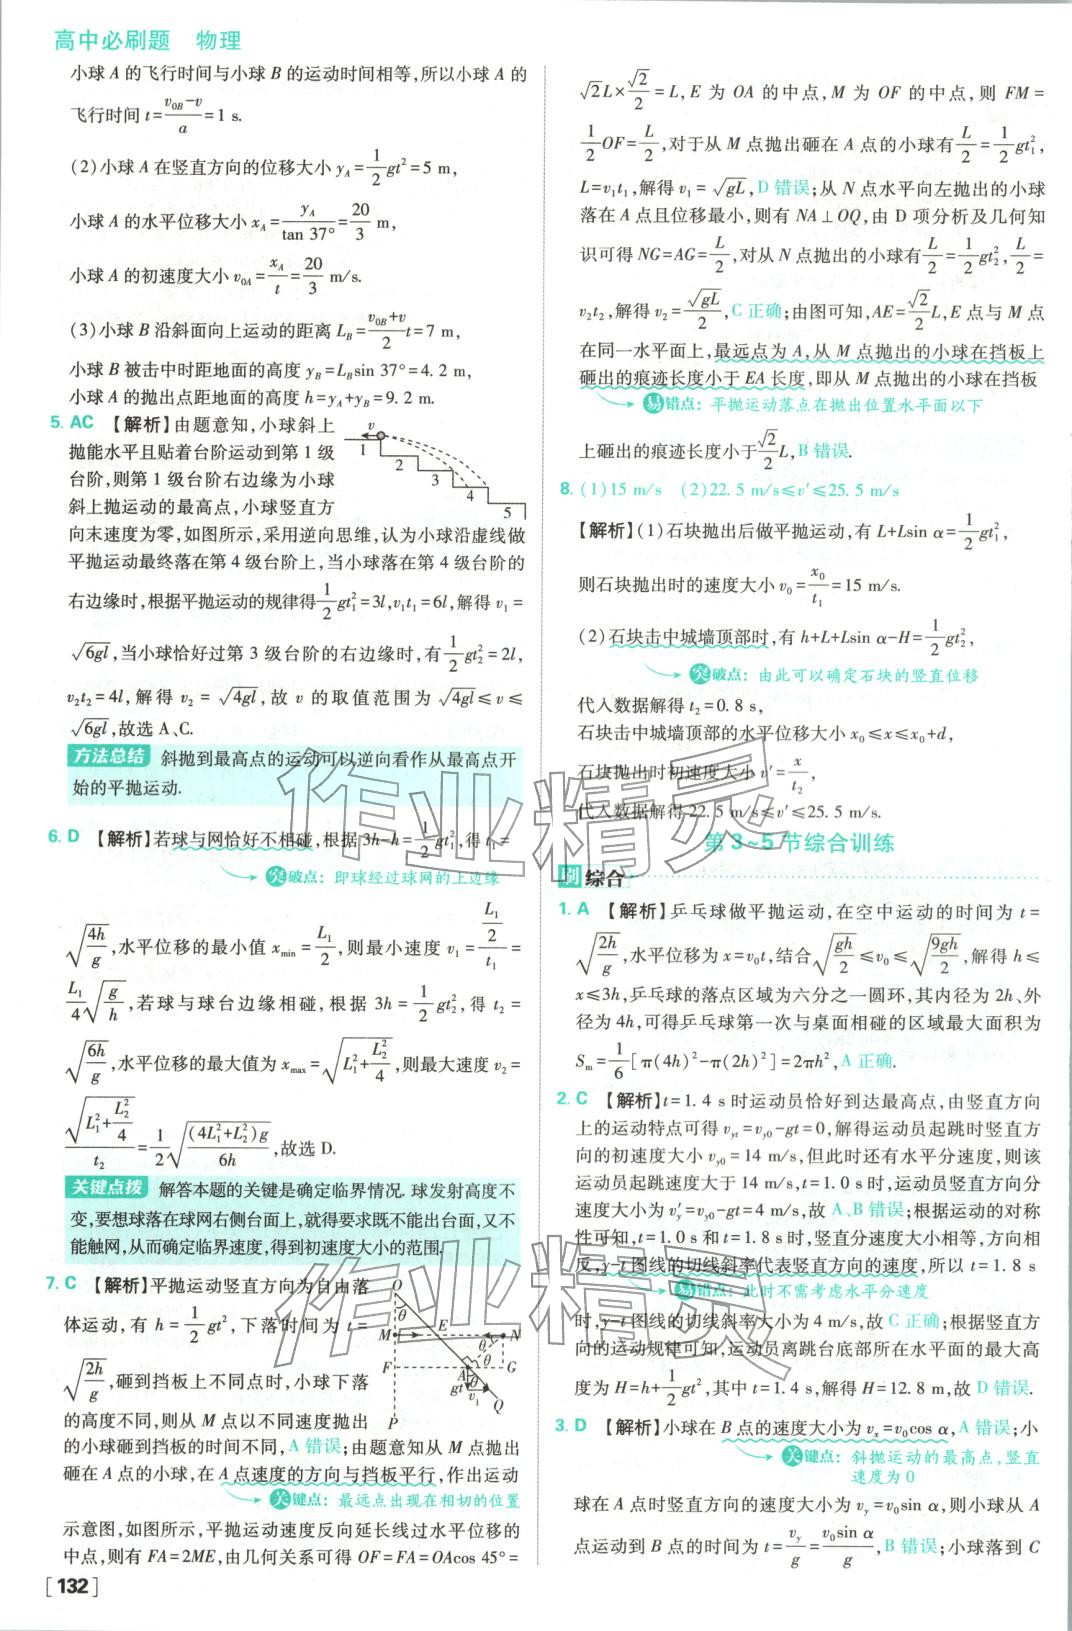 高中必刷题 物理
小球 A 的飞行时间与小球 B 的运动时间相等,所以小球 A 的
飞行时间 t=(v₀B-v)/a=1 s.
(2)小球 A 在竖直方向的位移大小 yA=1/2gt²=5 m,
小球 A 的水平位移大小 xA=yA/tan 37°=20/3 m,
小球 A 的初速度大小 v₀A=xA/t=20/3 m/s.
(3)小球 B 沿斜面向上运动的距离 LB=(v₀B+v)/2 t=7 m,
小球 B 被击中时距地面的高度 yB=LBsin 37°=4.2 m,
小球 A 的抛出点距地面的高度 h=yA+yB=9.2 m.
5. AC 【解析】由题意知,小球斜上
抛能水平且贴着台阶运动到第 1 级
台阶,则第 1 级台阶右边缘为小球
斜上抛运动的最高点,小球竖直方
向末速度为零,如图所示,采用逆向思维,认为小球沿虚线做
平抛运动最终落在第 4 级台阶上,当小球落在第 4 级台阶的
右边缘时,根据平抛运动的规律得1/2gt₁²=3l,v₁t₁=6l,解得 v₁=
√(6gl),当小球恰好过第 3 级台阶的右边缘时,有1/2gt₂²=2l,
v₂t₂=4l,解得 v₂=√(4gl),故 v 的取值范围为√(4gl)≤v≤
√(6gl),故选 A、C.
v
1
2
3
4
5
方法总结 斜抛到最高点的运动可以逆向看作从最高点开
始的平抛运动.
6. D 【解析】若球与网恰好不相碰,根据 3h-h=1/2gt₁²,得 t₁=
突破点:即球经过球网的上边缘
√(4h/g),水平位移的最小值 xmin=L₁/2,则最小速度 v₁=(L₁/2)/t₁=
L₁/4√(g/h),若球与球台边缘相碰,根据 3h=1/2gt₂²,得 t₂=
√(6h/g),水平位移的最大值为 xmax=√(L₁²+L₂²/4),则最大速度 v₂=
√(L₁²+L₂²/4)/t₂=1/2√((4L₁²+L₂²)g/6h),故选 D.
关键点拨 解答本题的关键是确定临界情况. 球发射高度不
变,要想球落在球网右侧台面上,就得要求既不能出台面,又不
能触网,从而确定临界速度,得到初速度大小的范围.
7. C 【解析】平抛运动竖直方向为自由落
体运动,有 h=1/2gt²,下落时间为 t=
√(2h/g),砸到挡板上不同点时,小球下落
的高度不同,则从 M 点以不同速度抛出
的小球砸到挡板的时间不同,A 错误;由题意知从 M 点抛出
砸在 A 点的小球,在 A 点速度的方向与挡板平行,作出运动
关键点:最远点出现在相切的位置
示意图,如图所示,平抛运动速度反向延长线过水平位移的
中点,则有 FA=2ME,由几何关系可得 OF=FA=OAcos 45°=
O
θ
M
E
N
F
G
θ
θ
A
gt
θ
v₁
P
Q
[132]
√2L×√2/2=L,E 为 OA 的中点,M 为 OF 的中点,则 FM=
1/2OF=L/2,对于从 M 点抛出砸在 A 点的小球有L/2=1/2gt₁²,
L=v₁t₁,解得 v₁=√(gL),D 错误;从 N 点水平向左抛出的小球
落在 A 点且位移最小,则有 NA⊥OQ,由 D 项分析及几何知
识可得 NG=AG=L/2,对从 N 点抛出的小球有L/2=1/2gt₂²,L/2=
v₂t₂,解得 v₂=√(gL)/2,C 正确;由图可知,AE=√2/2L,E 点与 M 点
在同一水平面上,最远点为 A,从 M 点抛出的小球在挡板上
砸出的痕迹长度小于 EA 长度,即从 M 点抛出的小球在挡板
易错点:平抛运动落点在抛出位置水平面以下
上砸出的痕迹长度小于√2/2L,B 错误.
8. (1)15 m/s (2)22.5 m/s≤v′≤25.5 m/s
【解析】(1)石块抛出后做平抛运动,有 L+Lsin α=1/2gt₁²,
则石块抛出时的速度大小 v₀=x₀/t₁=15 m/s.
(2)石块击中城墙顶部时,有 h+L+Lsin α-H=1/2gt₂²,
突破点:由此可以确定石块的竖直位移
代入数据解得 t₂=0.8 s,
石块击中城墙顶部的水平位移 x₀≤x≤x₀+d,
石块抛出时初速度大小 v′=x/t₂,
代入数据解得 22.5 m/s≤v′≤25.5 m/s.
第 3~5 节综合训练
刷 综合
1. A 【解析】乒乓球做平抛运动,在空中运动的时间为 t=
√(2h/g),水平位移为 x=v₀t,结合√(gh/2)≤v₀≤√(9gh/2),解得 h≤
x≤3h,乒乓球的落点区域为六分之一圆环,其内径为 2h、外
径为 4h,可得乒乓球第一次与桌面相碰的区域最大面积为
Sm=1/6[π(4h)²-π(2h)²]=2πh²,A 正确.
2. C 【解析】t=1.4 s 时运动员恰好到达最高点,由竖直方向
上的运动特点可得 vyt=vy0-gt=0,解得运动员起跳时竖直方
向的初速度大小 vy0=14 m/s,但此时还有水平分速度,则该
运动员起跳速度大于 14 m/s,t=1 s 时,运动员竖直方向分
速度大小为 v′y=vy0-gt=4 m/s,故 A、B 错误;根据运动的对称
性可知,t=1 s 和 t=1.8 s 时,竖直分速度大小相等,方向相
反,y-t 图线的切线斜率代表竖直方向的速度,所以 t=1.8 s
易错点:此时不需考虑水平分速度
时,y-t 图线的切线斜率大小为 4 m/s,故 C 正确;根据竖直方
向的运动规律可知,运动员离跳台底部所在水平面的最大高
度为 H=h+1/2gt²,其中 t=1.4 s,解得 H=12.8 m,故 D 错误.
3. D 【解析】小球在 B 点的速度大小为 vx=v₀cos α,A 错误;小
关键点:斜抛运动的最高点,竖直
速度为 0
球在 A 点时竖直方向的速度大小为 vy=v₀sin α,则小球从 A
点运动到 B 点的时间为 t=vy/g=v₀sin α/g,B 错误;小球落到 C
作业精灵
作业精灵